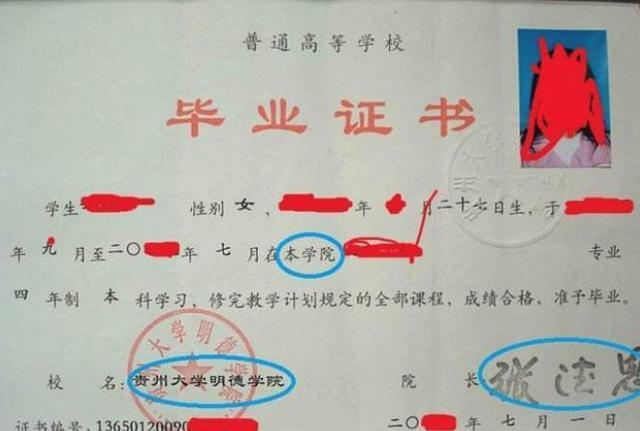 普通高等学校
毕业证书
学生 性别 女， 年 月二十七日生，于
年 九 月至二〇 年 七 月在本学院 专业
四 年制 本 科学习，修完教学计划规定的全部课程，成绩合格，准予毕业。
校 名：贵州大学明德学院 院 长：
证书编号：13650120090 二〇 年 七 月 一 日